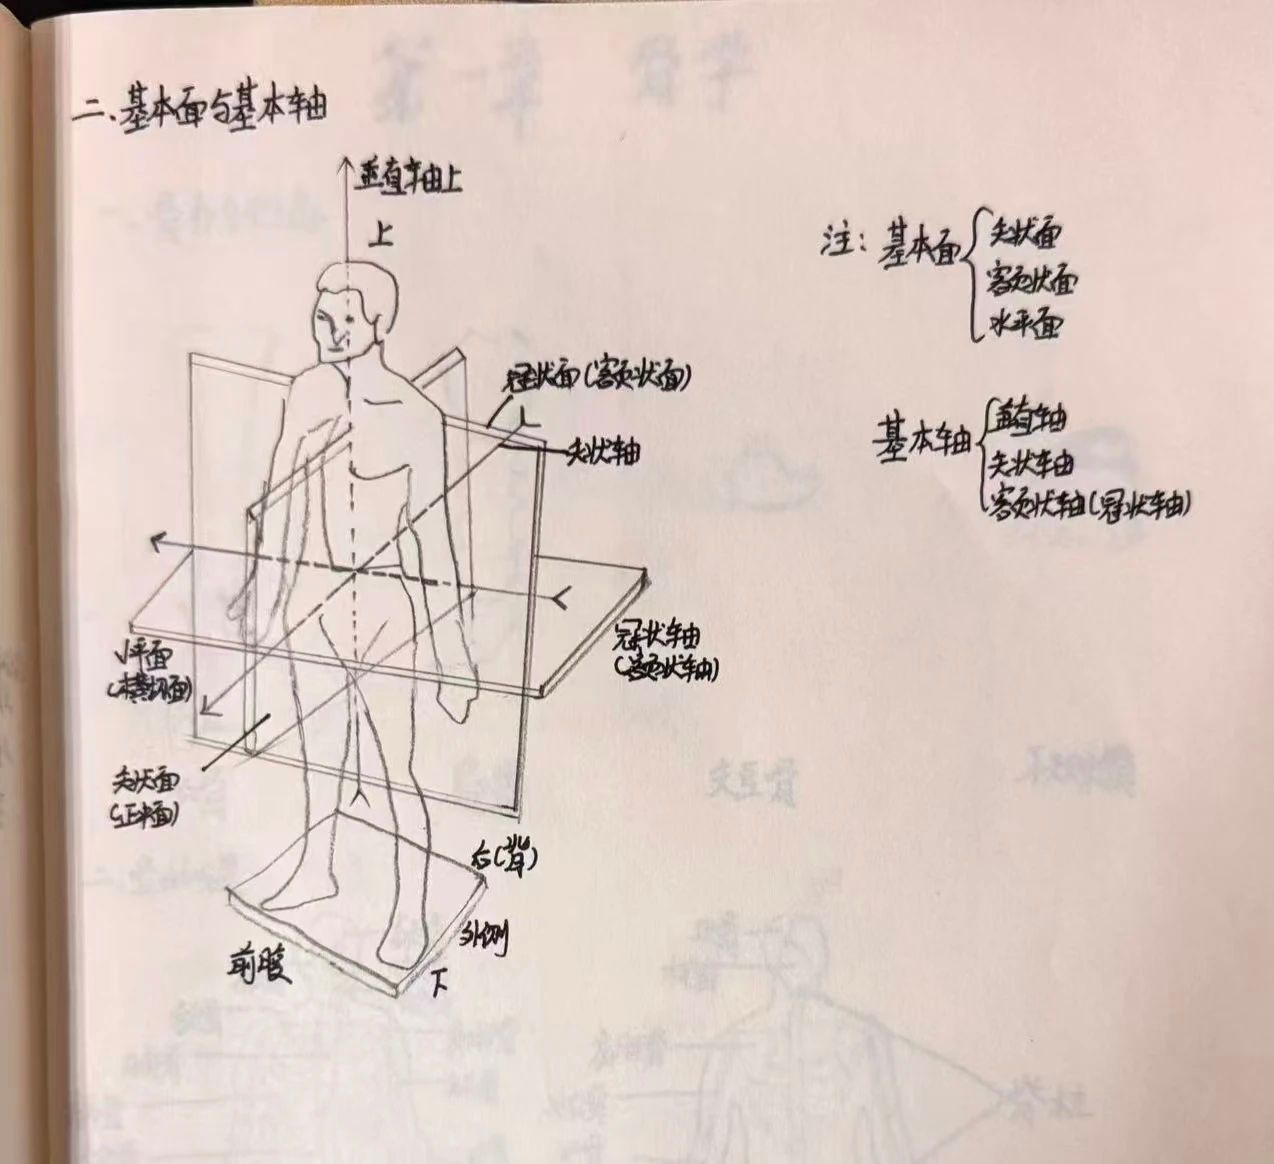 二、基本面与基本轴
垂直轴上
上
注：基本面
矢状面
额状面
水平面
冠状面(额状面)
矢状轴
基本轴
垂直轴
矢状轴
额状轴(冠状轴)
冠状轴
(额状轴)
水平面
(横切面)
矢状面
(正中面)
后(背)
外侧
前腹
下